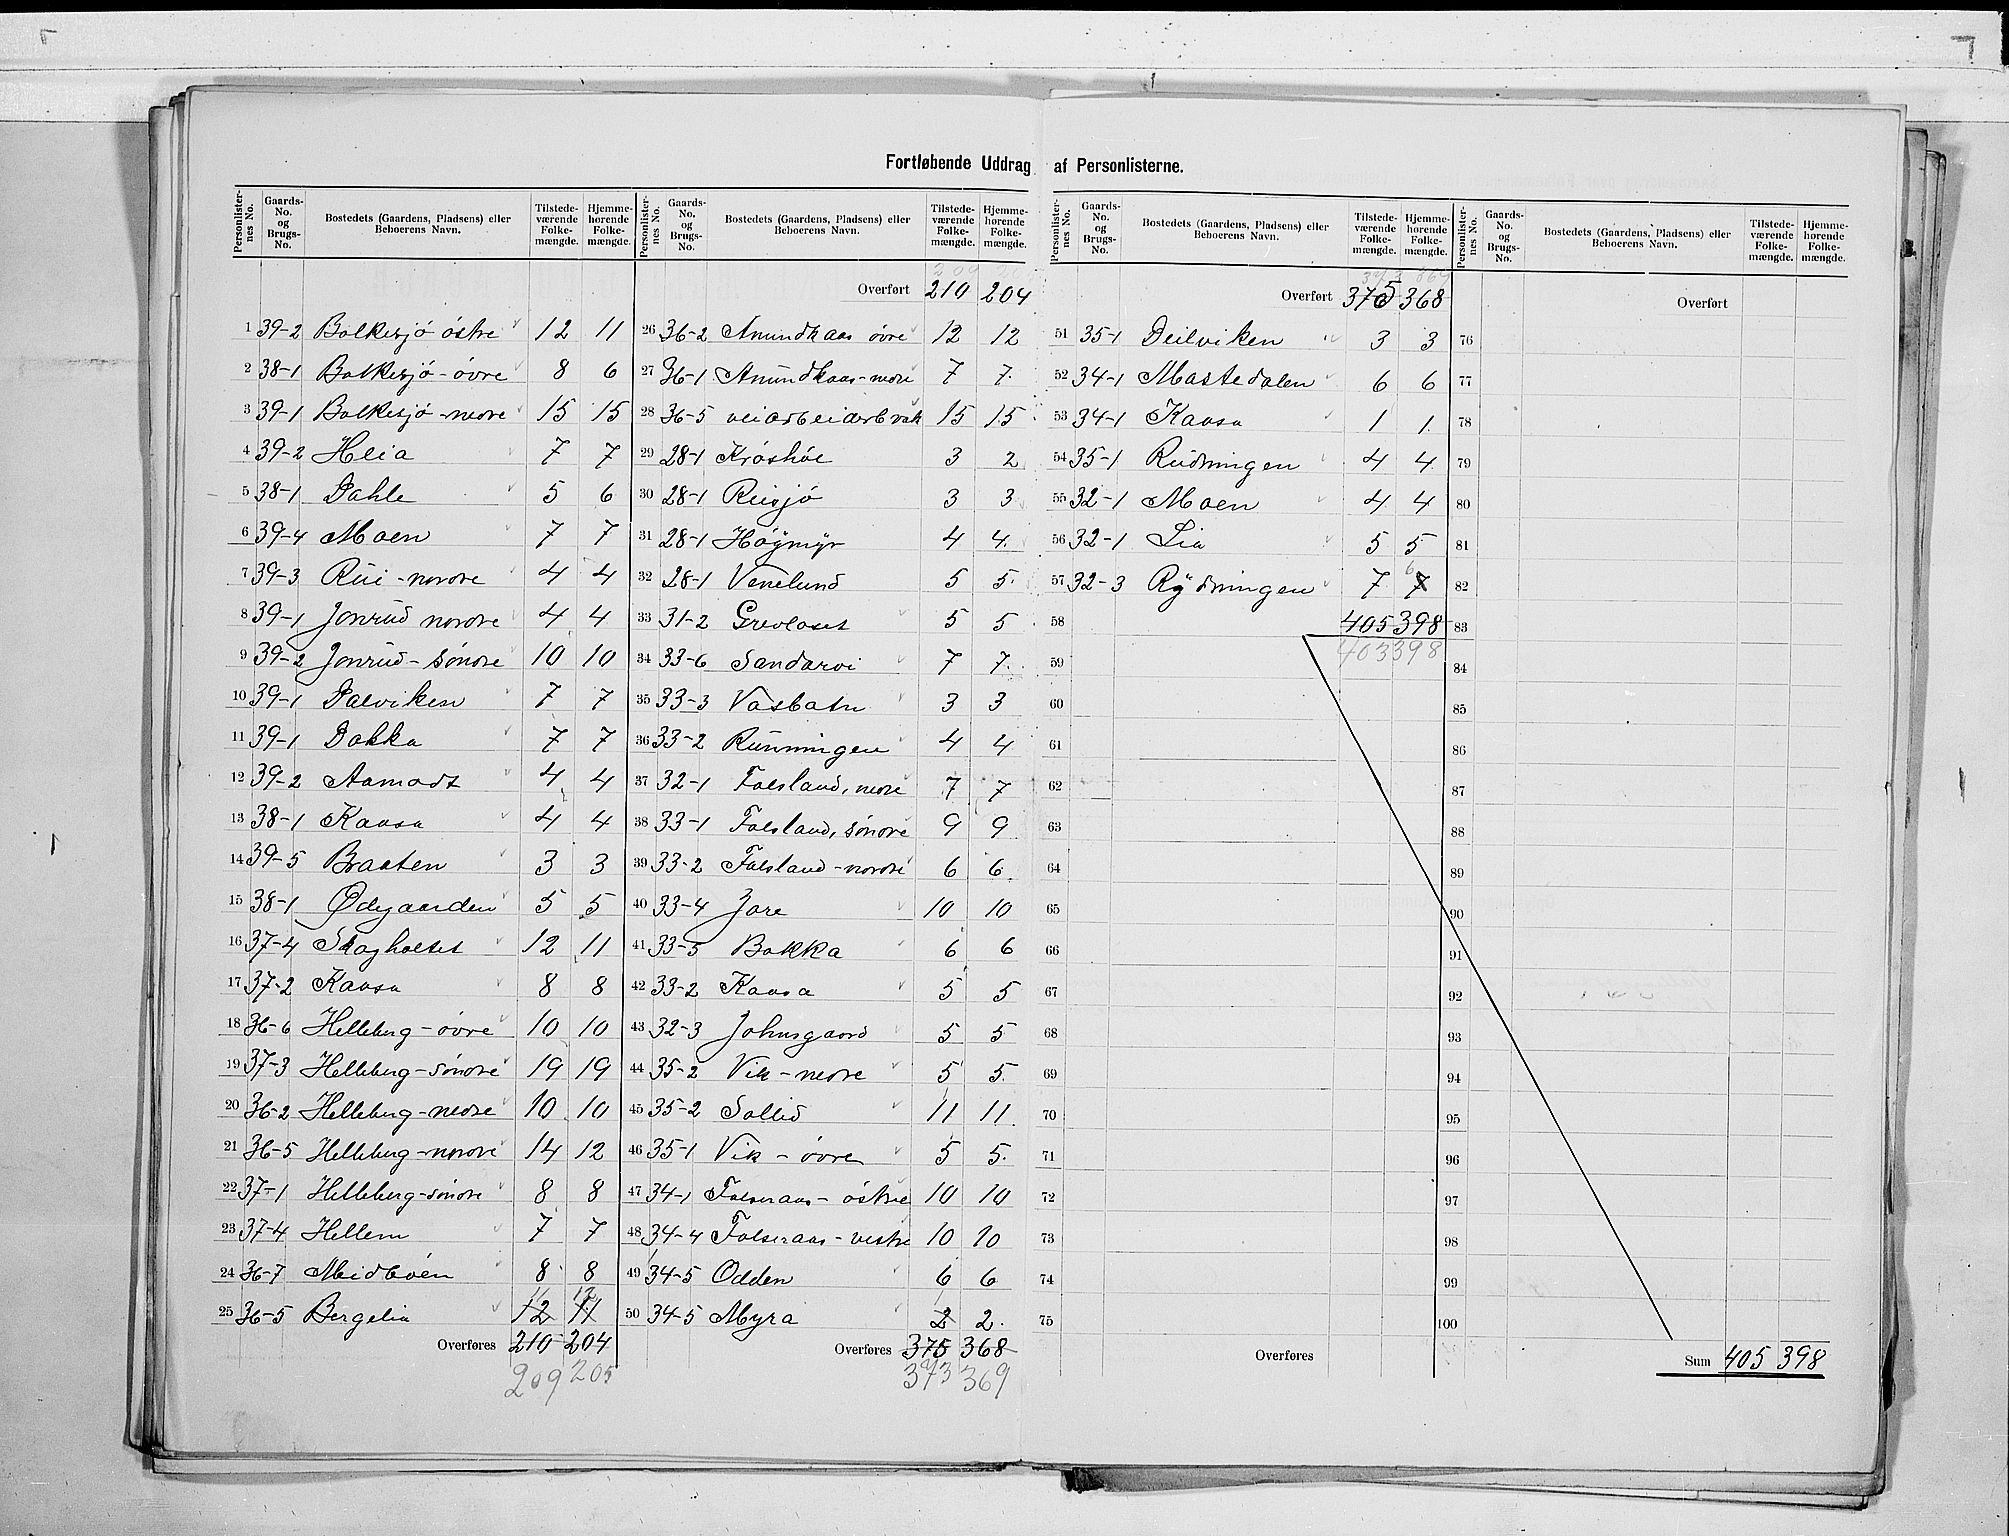 Fortløbende Uddrag af Personlisterne.
Personlister-nes No. Gaards-No. og Brugs-No. Bostedets (Gaardens, Pladsens) eller Beboerens Navn. Tilstede-værende Folke-mængde. Hjemme-hørende Folke-mængde.
1 39-2 Bolkesjö östre 12 11
2 38-1 Bolkesjö-övre 8 6
3 39-1 Bolkesjö-nedre 15 15
4 39-2 Heia 7 7
5 38-1 Dahle 5 6
6 39-4 Moen 7 7
7 39-3 Rui-nordre 4 4
8 39-1 Jonrud nordre 4 4
9 39-2 Jonrud-söndre 10 10
10 39-1 Dalviken 7 7
11 39-1 Dokka 7 7
12 39-2 Aamodt 4 4
13 38-1 Kaasa 4 4
14 39-5 Braaten 3 3
15 38-1 Ødegaarden 5 5
16 37-4 Skogholtet 12 11
17 37-2 Kaasa 8 8
18 36-6 Helleberg-övre 10 10
19 37-3 Helleberg-söndre 19 19
20 36-2 Helleberg-nedre 10 10
21 36-5 Helleberg-nordre 14 12
22 37-1 Helleberg-söndre 8 8
23 37-4 Hellem 7 7
24 36-7 Meidböen 8 8
11 12
25 36-5 Bergelia 12 11
Overføres 210 204
209 205
Personlister-nes No. Gaards-No. og Brugs-No. Bostedets (Gaardens, Pladsens) eller Beboerens Navn. Tilstede-værende Folke-mængde. Hjemme-hørende Folke-mængde.
209 205
Overført 210 204
26 36-2 Amundkaas övre 12 12
27 36-1 Amundkaas-nedre 7 7.
28 36-5 veiarbeiderbrak 15 15
29 28-1 Kröshöe 3 2
30 28-1 Reisjö 3 3
31 28-1 Högmyr 4 4.
32 28-1 Venelund 5 5.
33 31-2 Grevlaset 5 5
34 33-6 Sandarvi 7 7.
35 33-3 Vasbotn 3 3
36 33-2 Runningen 4 4
37 32-1 Folsland, nedre 7 7
38 33-1 Folsland, söndre 9 9
39 33-2 Folsland-nordre 6 6.
40 33-4 Jore 10 10
41 33-5 Bakka 6 6
42 33-2 Kaasa 5 5
43 32-3 Johnsgaard 5 5
44 35-2 Vik-nedre 5 5.
45 35-2 Sollid 11 11.
46 35-1 Vik-övre 5 5.
47 34-1 Folseraas-östre 10 10
48 34-4 Folseraas-vestre 10 10
49 34-5 Odden 6 6
1
50 34-5 Myra 2 2.
Overføres 375 368
373 369
Personlister-nes No. Gaards-No. og Brugs-No. Bostedets (Gaardens, Pladsens) eller Beboerens Navn. Tilstede-værende Folke-mængde. Hjemme-hørende Folke-mængde.
373 369
Overført 375 368
51 35-1 Deilviken 3 3
52 34-1 Mastedalen 6 6
53 34-1 Kaasa 1 1.
54 35-1 Rudningen 4 4
55 32-1 Moen 4 4
56 32-1 Lia 5 5
6
57 32-3 Rydningen 7 7
58 405 398
59 403 398
60
61
62
63
64
65
66
67
68
69
70
71
72
73
74
75
Overføres
Personlister-nes No. Gaards-No. og Brugs-No. Bostedets (Gaardens, Pladsens) eller Beboerens Navn. Tilstede-værende Folke-mængde. Hjemme-hørende Folke-mængde.
Overført
76
77
78
79
80
81
82
83
84
85
86
87
88
89
90
91
92
93
94
95
96
97
98
99
100
Sum 405 398